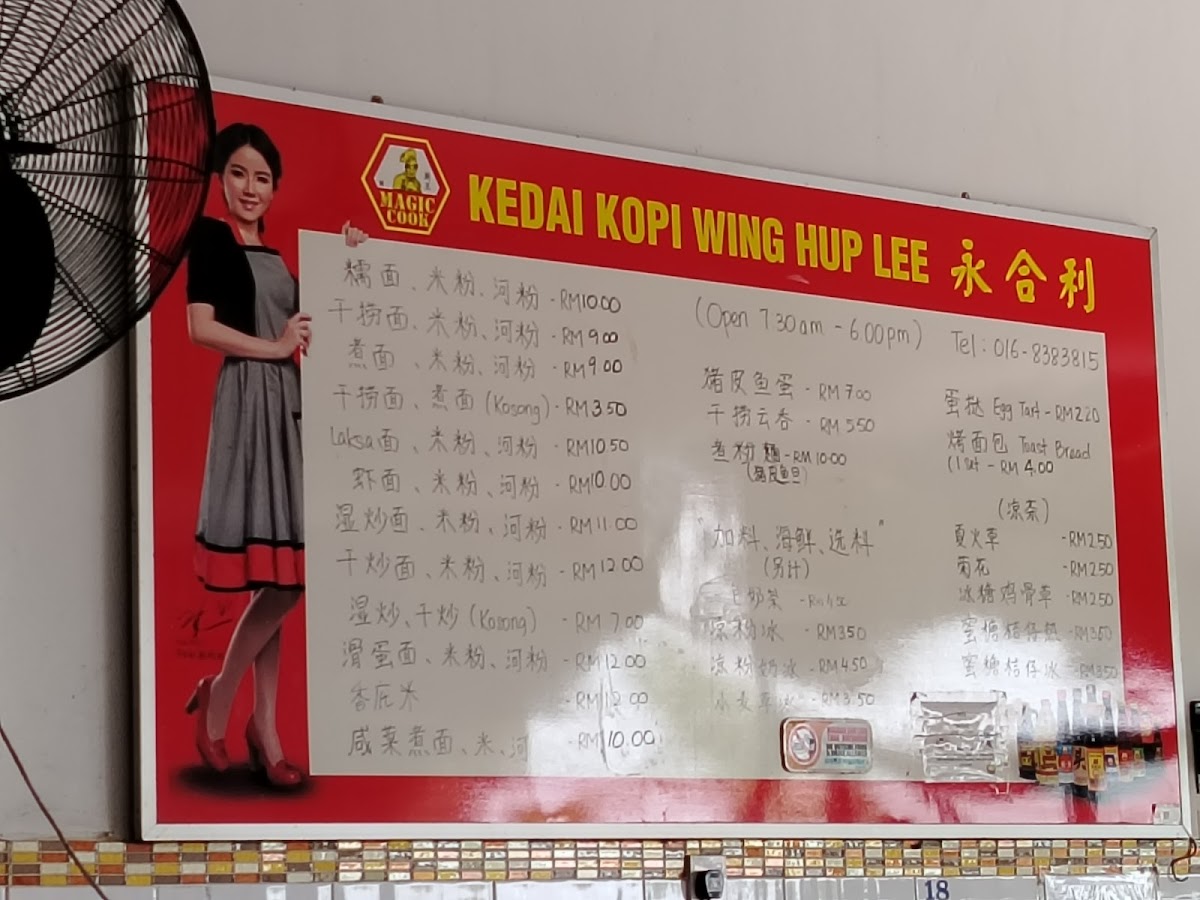 MAGIC
COOK
KEDAI KOPI WING HUP LEE 永合利
糯面、米粉、河粉 - RM10.00
干捞面、米粉、河粉 - RM 9.00
煮面、米粉、河粉 - RM9.00
干捞面、煮面 (Kosong) - RM3.50
Laksa面、米粉、河粉 - RM10.50
虾面、米粉、河粉 - RM10.00
湿炒面、米粉、河粉 - RM11.00
干炒面、米粉、河粉 - RM12.00
湿炒、干炒 (Kosong) - RM7.00
滑蛋面、米粉、河粉 - RM12.00
香底米 - RM12.00
咸菜煮面、米、河 - RM10.00
(Open 7.30am - 6.00pm)
Tel: 016-8383815
猪皮鱼蛋 - RM7.00
干捞云吞 - RM 5.50
煮粉 麵 - RM 10.00
(猪皮鱼旦)
"加料、海鲜、选料"
(另计)
奶茶
凉粉冰 - RM3.50
凉粉奶冰 - RM4.50
小麦草冰 - RM3.50
蛋挞 Egg Tart - RM2.20
烤面包 Toast Bread
(1 set - RM 4.00
(凉茶)
夏火草 - RM2.50
菊花 - RM2.50
冰糖鸡骨草 - RM2.50
蜜糖桔仔热 - RM3.50
蜜糖桔仔冰 - RM3.50
18